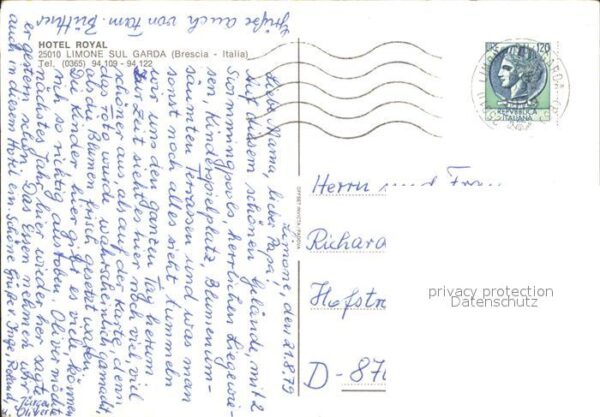 HOTEL ROYAL
25010 LIMONE SUL GARDA (Brescia - Italia)
Tel. (0365) 94.109 - 94.122
Limone, den 21.8.79
Liebe Mama, lieber Papa!
Auf diesem schönen Gelände, mit 2
Swimmingpools herrlichen Liegewie-
sen, Kinderspielplatz, Blumenum-
säumten Terrassen und was man
sonst noch alles sieht tummeln
wir uns den ganzen Tag herum
Zur Zeit sieht es hier noch viel, viel
schöner aus, als auf der Karte, denn
das Foto wurde wahrscheinlich gemacht,
als die Blumen frisch gesetzt waren.
Die Kinder, hier gibt es viele, können
sich so richtig austoben. Oliver möchte
nächstes Jahr hier wieder her sagte
er gestern schon. Das Essen nehmen wir
auch in diesem Hotel ein. Schöne Grüße Inge, Roland,
Jürgen
u. Oliver
Grüße auch von Fam. Büttner
OFFSET INVICTA PADOVA
LIRE 120
REPVBBLICA
ITALIANA
LIMONE
GARDA
Herrn und
Richard
Hofstr
D-87
privacy protection
Datenschutz